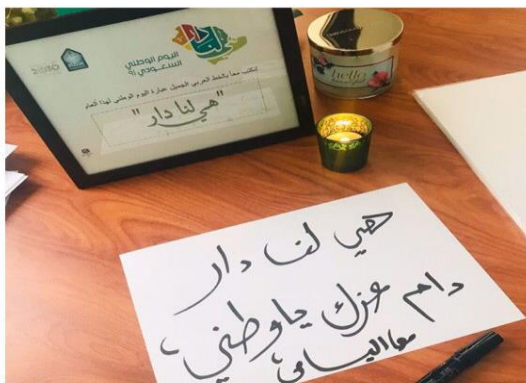 هي لنا دار
اليوم الوطني
السعودي 91
لنكتب معاً بالخط العربي الجميل عبارة اليوم الوطني لهذا العام
"هي لنا دار"
hello
هي لنا دار
دام عزك ياوطني،